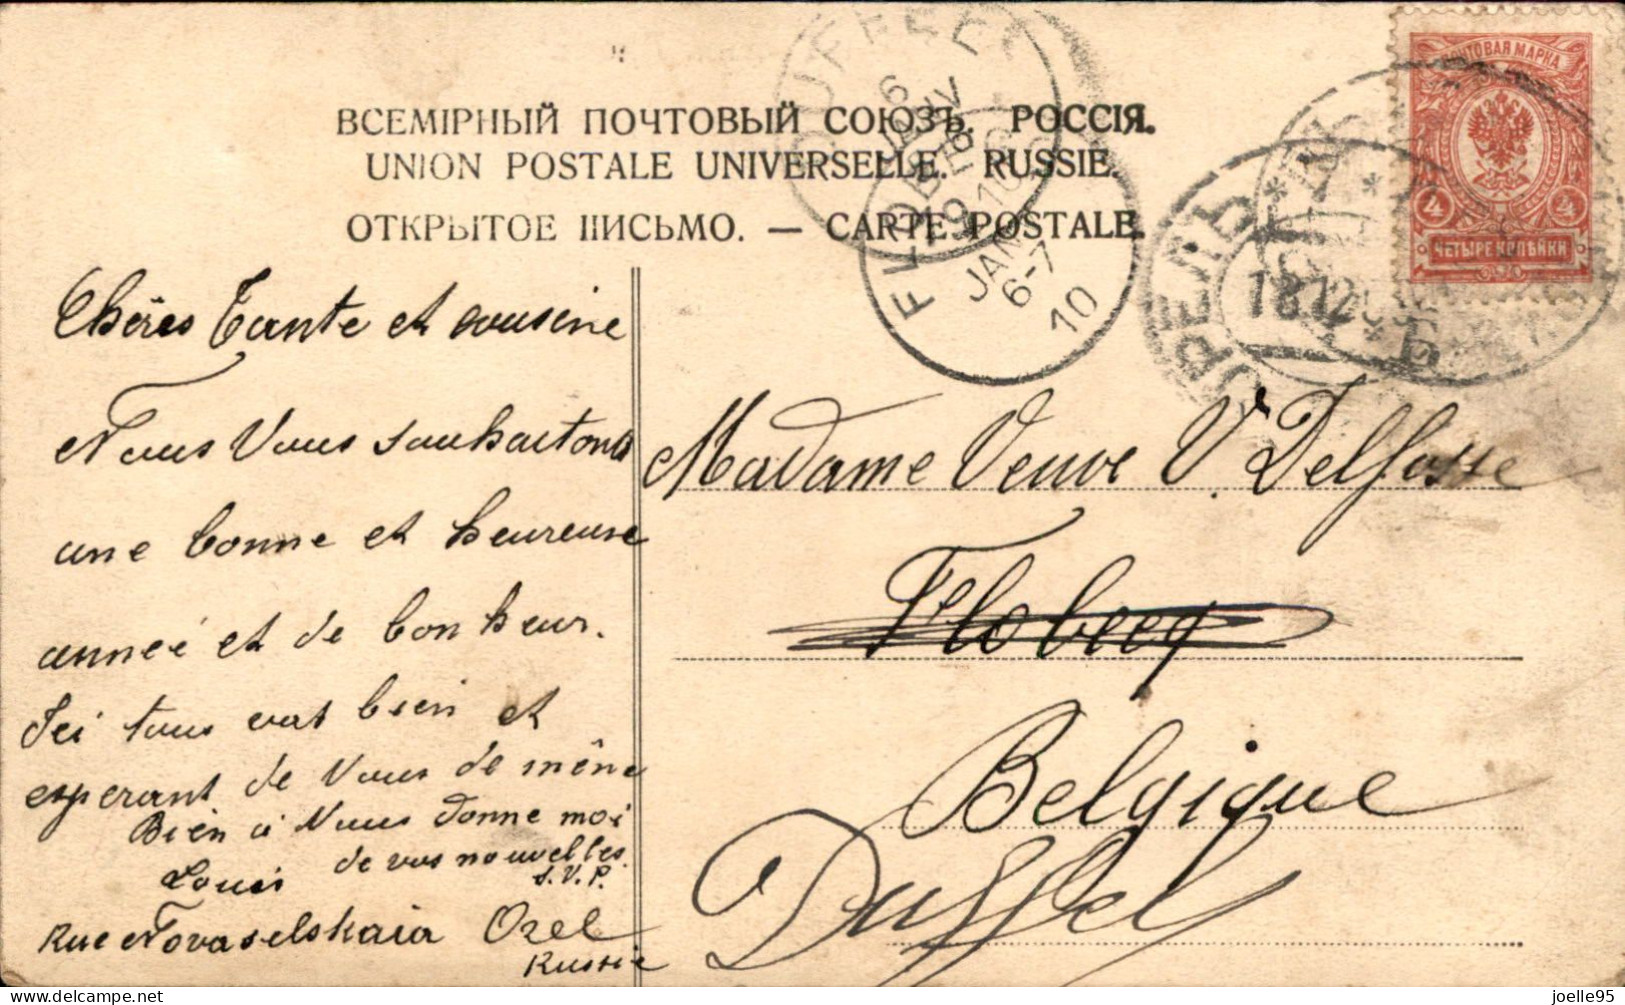 ВСЕМІРНЫЙ ПОЧТОВЫЙ СОЮЗЪ. РОССІЯ.
UNION POSTALE UNIVERSELLE. RUSSIE.
ОТКРЫТОЕ ПИСЬМО. — CARTE POSTALE.
ПОЧТОВАЯ МАРКА
4 4
ЧЕТЫРЕ КОПѢЙКИ
DUFFEL
6
JANV
FLOBECQ
JAN
6-7
10
ОРЕЛЪ
18.12.09
Chères Tante et cousine
Nous Vous souhaitons
une bonne et heureuse
année et de bonheur.
Ici tous vat bien et
esperant de Vous de même
Bien à Vous donne moi
de vos nouvelles
S.V.P.
Louis
Rue Novaselskaia Orel
Russie
Madame Veuve V. Delfosse
Flobecq
Belgique
Duffel
delcampe.net
joelle95